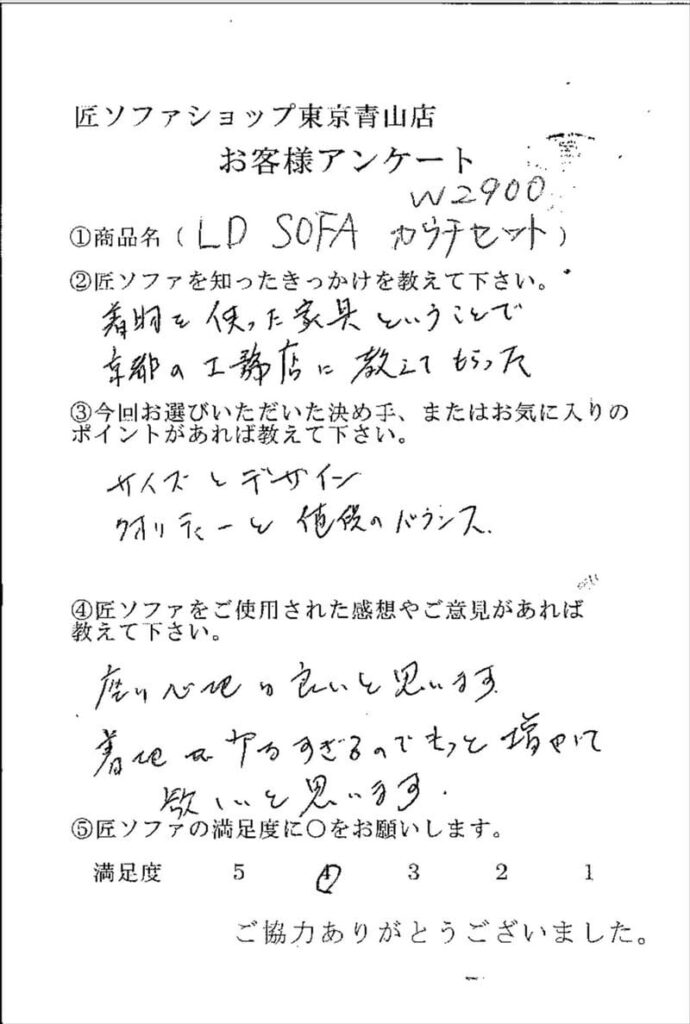 匠ソファショップ東京青山店
お客様アンケート
W2900
①商品名(LD SOFA カウチセット)
②匠ソファを知ったきっかけを教えて下さい。
を使った家具ということで
京都の工務店に教えてもらった
③今回お選びいただいた決め手、またはお気に入りの
ポイントがあれば教えて下さい。
サイズとデザイン
クオリティーと値段のバランス.
④匠ソファをご使用された感想やご意見があれば
教えて下さい。
座り心地は良いと思います
すぎるのでもっと増やして
欲しいと思います.
⑤匠ソファの満足度に○をお願いします。
満足度 5 4 3 2 1
ご協力ありがとうございました。